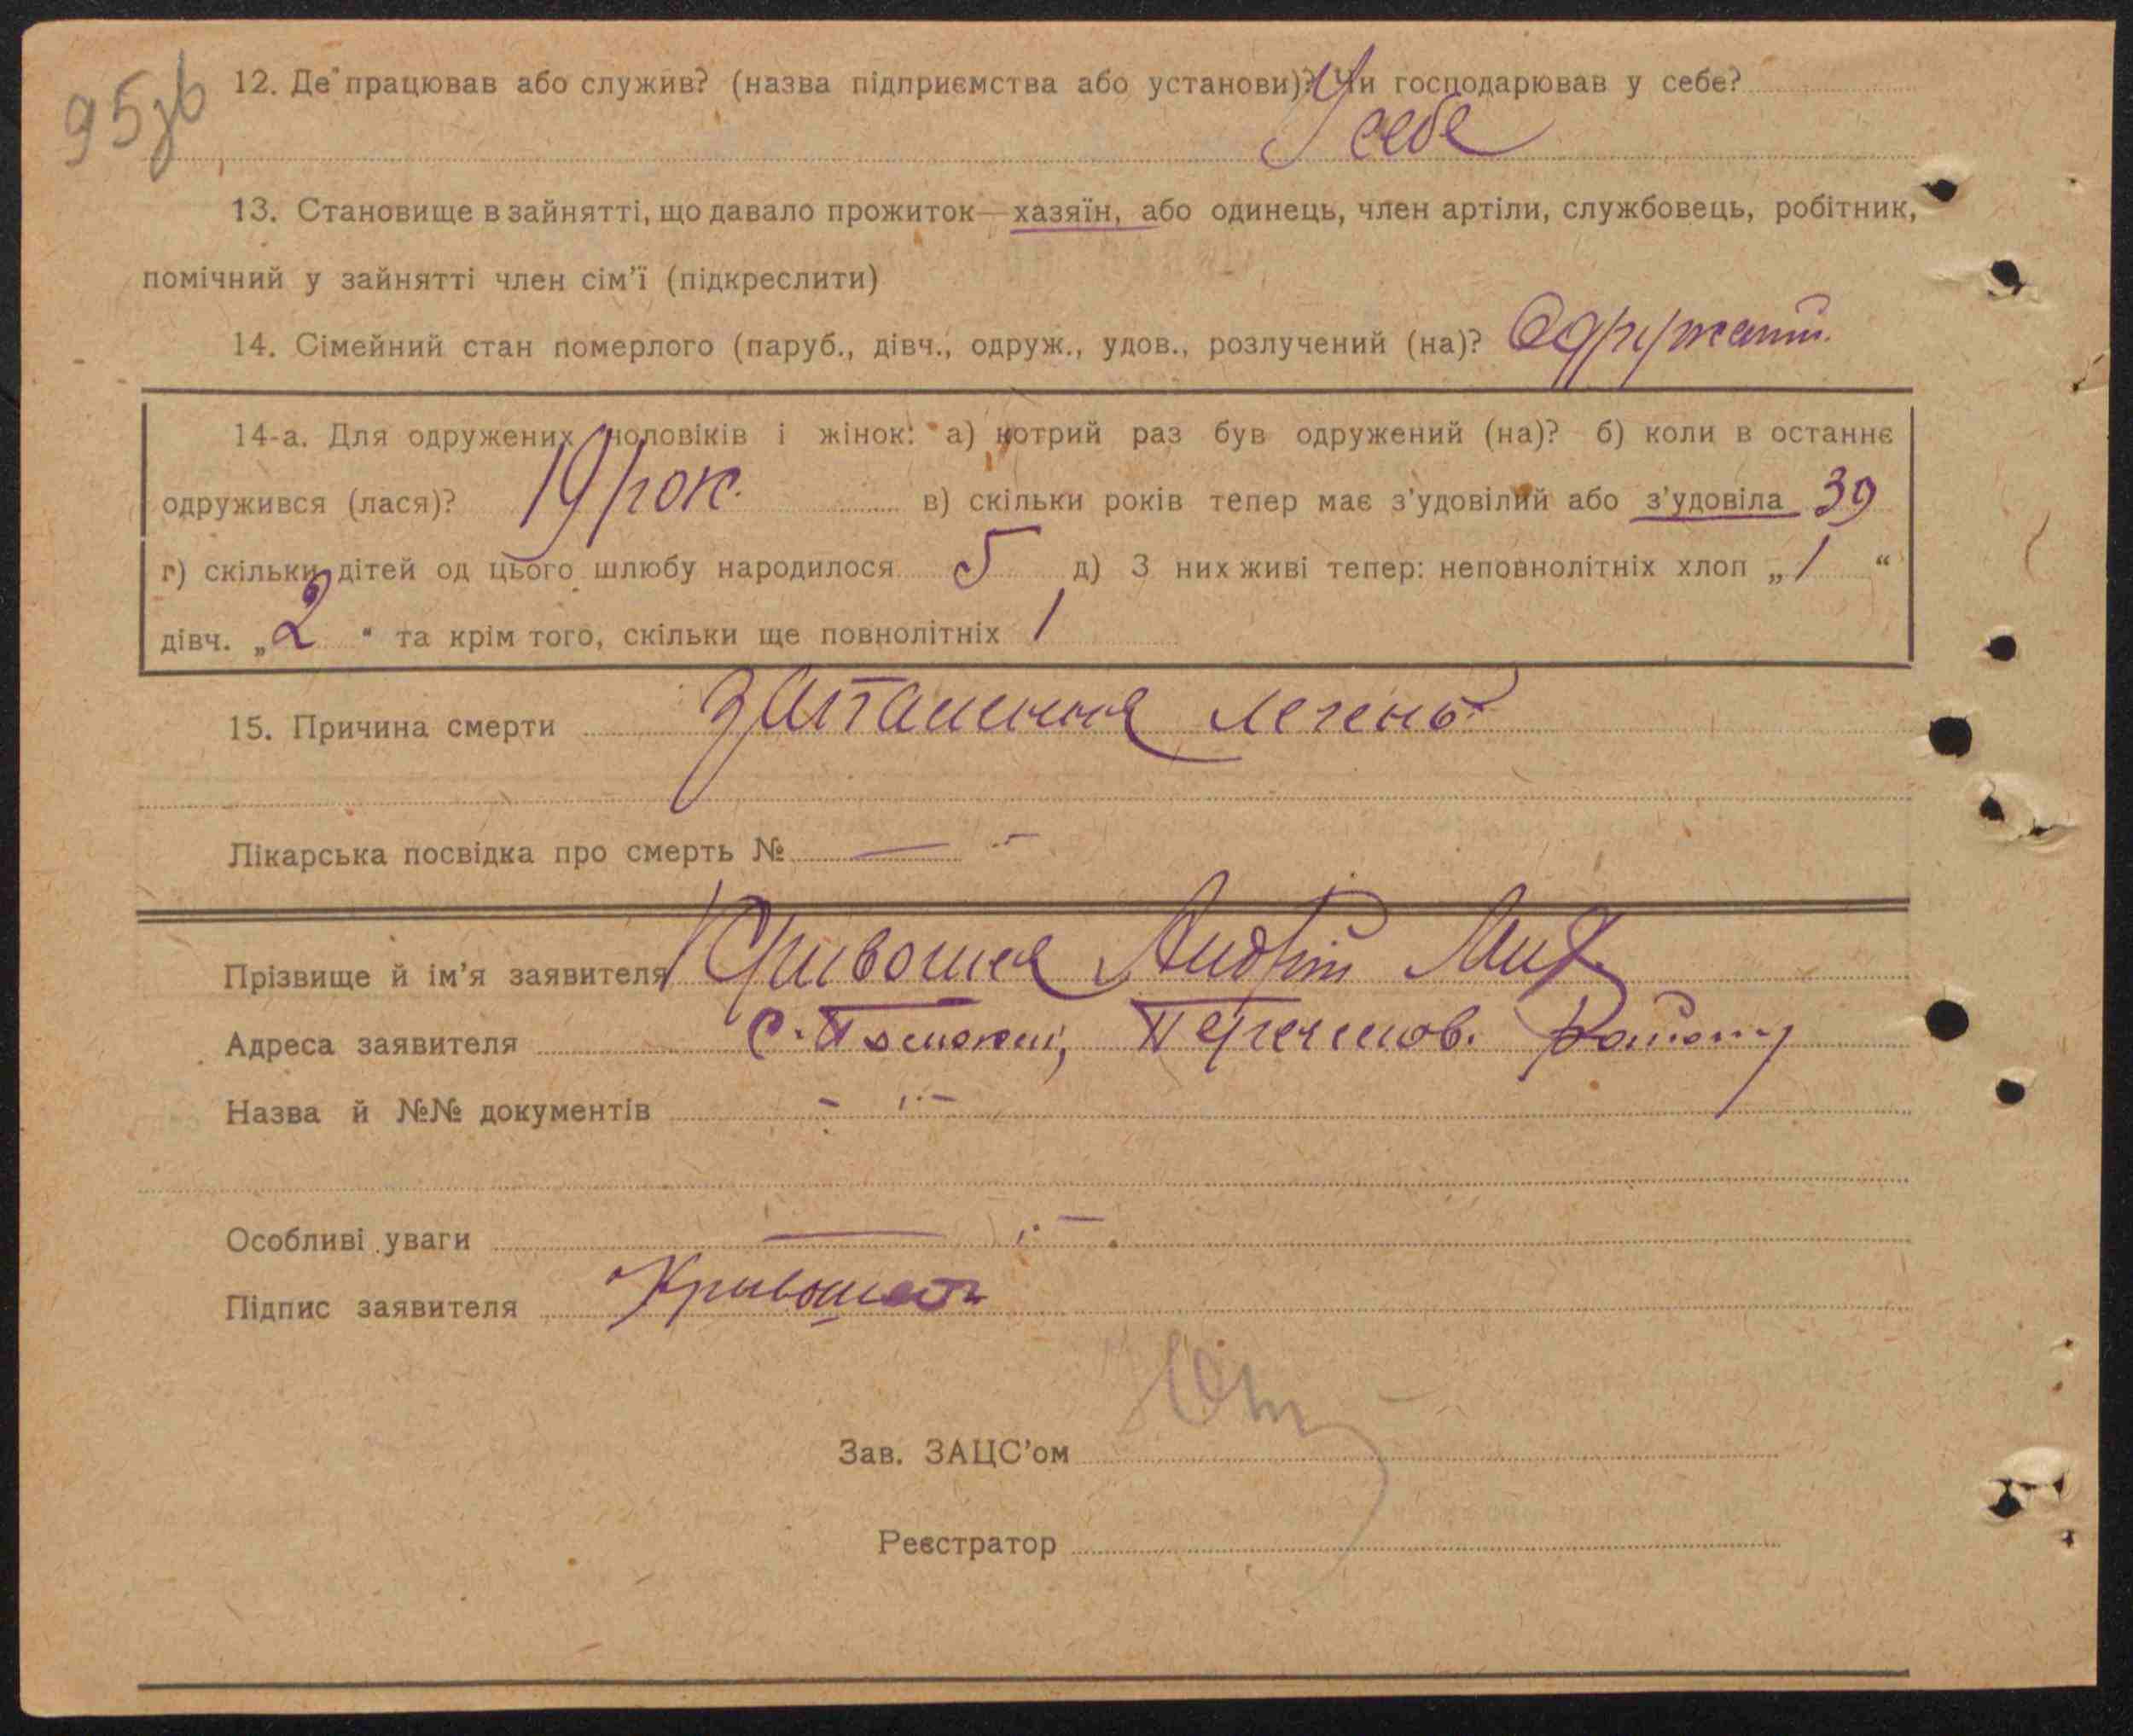 95зв
12. Де працював або служив? (назва підприємства або установи)? Чи господарював у себе?
У себе
13. Становище в зайнятті, що давало прожиток—хазяїн, або одинець, член артіли, службовець, робітник,
помічний у зайнятті член сім'ї (підкреслити)
14. Сімейний стан померлого (паруб., дівч., одруж., удов., розлучений (на)? Одружений.
14-а. Для одружених чоловіків і жінок: а) котрий раз був одружений (на)? б) коли в останнє
одружився (лася)? 19 рок. в) скільки років тепер має з'удовілий або з'удовіла 39
г) скільки дітей од цього шлюбу народилося 5 д) З них живі тепер: неповнолітніх хлоп „1“
дівч. „2“ та крім того, скільки ще повнолітніх 1
15. Причина смерти запалення легень
Лікарська посвідка про смерть № —
Прізвище й ім'я заявителя Кривошея Андрій Мих.
Адреса заявителя с. район
Назва й №№ документів - -
Особливі уваги — —
Підпис заявителя Кривошея
Зав. ЗАЦС'ом
Реєстратор